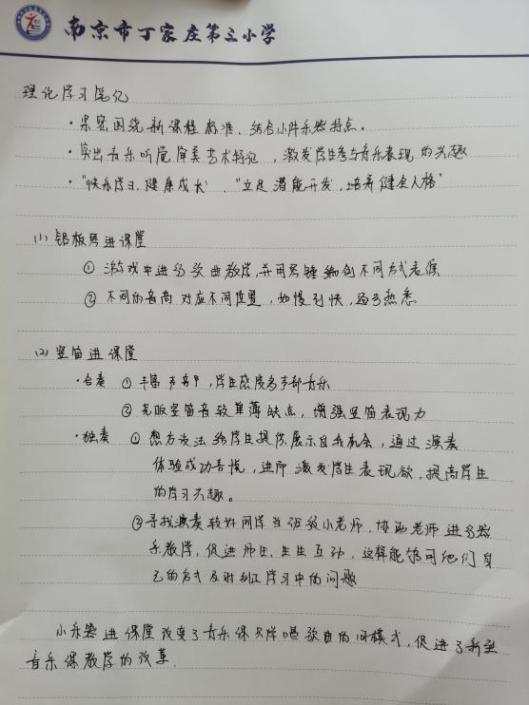 南京市丁家庄第三小学
理论学习笔记
· 紧密围绕新课程标准、结合小件乐器特点。
· 突出音乐听觉审美艺术特征，激发学生参与音乐表现的兴趣
· "快乐学习、健康成长"、"立足潜能开发，培养健全人格"
(1) 铝板琴进课堂
① 游戏中进行歌曲教学，并用琴锤编创不同方式表演
② 不同的音高对应不同位置，由慢到快，逐步熟悉
(2) 竖笛进课堂
· 合奏 ① 丰富声音，学生感受多声部音乐
② 克服竖笛音较单薄缺点，增强竖笛表现力
· 独奏 ① 想方设法给学生提供展示自我机会，通过演奏
体验成功喜悦，进而激发学生表现欲、提高学生
的学习兴趣。
② 寻找演奏较好同学当班级小老师，协助老师进行器
乐教学，促进师生、生生互动，这样能够用他们自
己的方式及时纠正学习中的问题
小乐器进课堂改变了音乐课只学唱歌曲的旧模式，促进了新型
音乐课教学的改革.